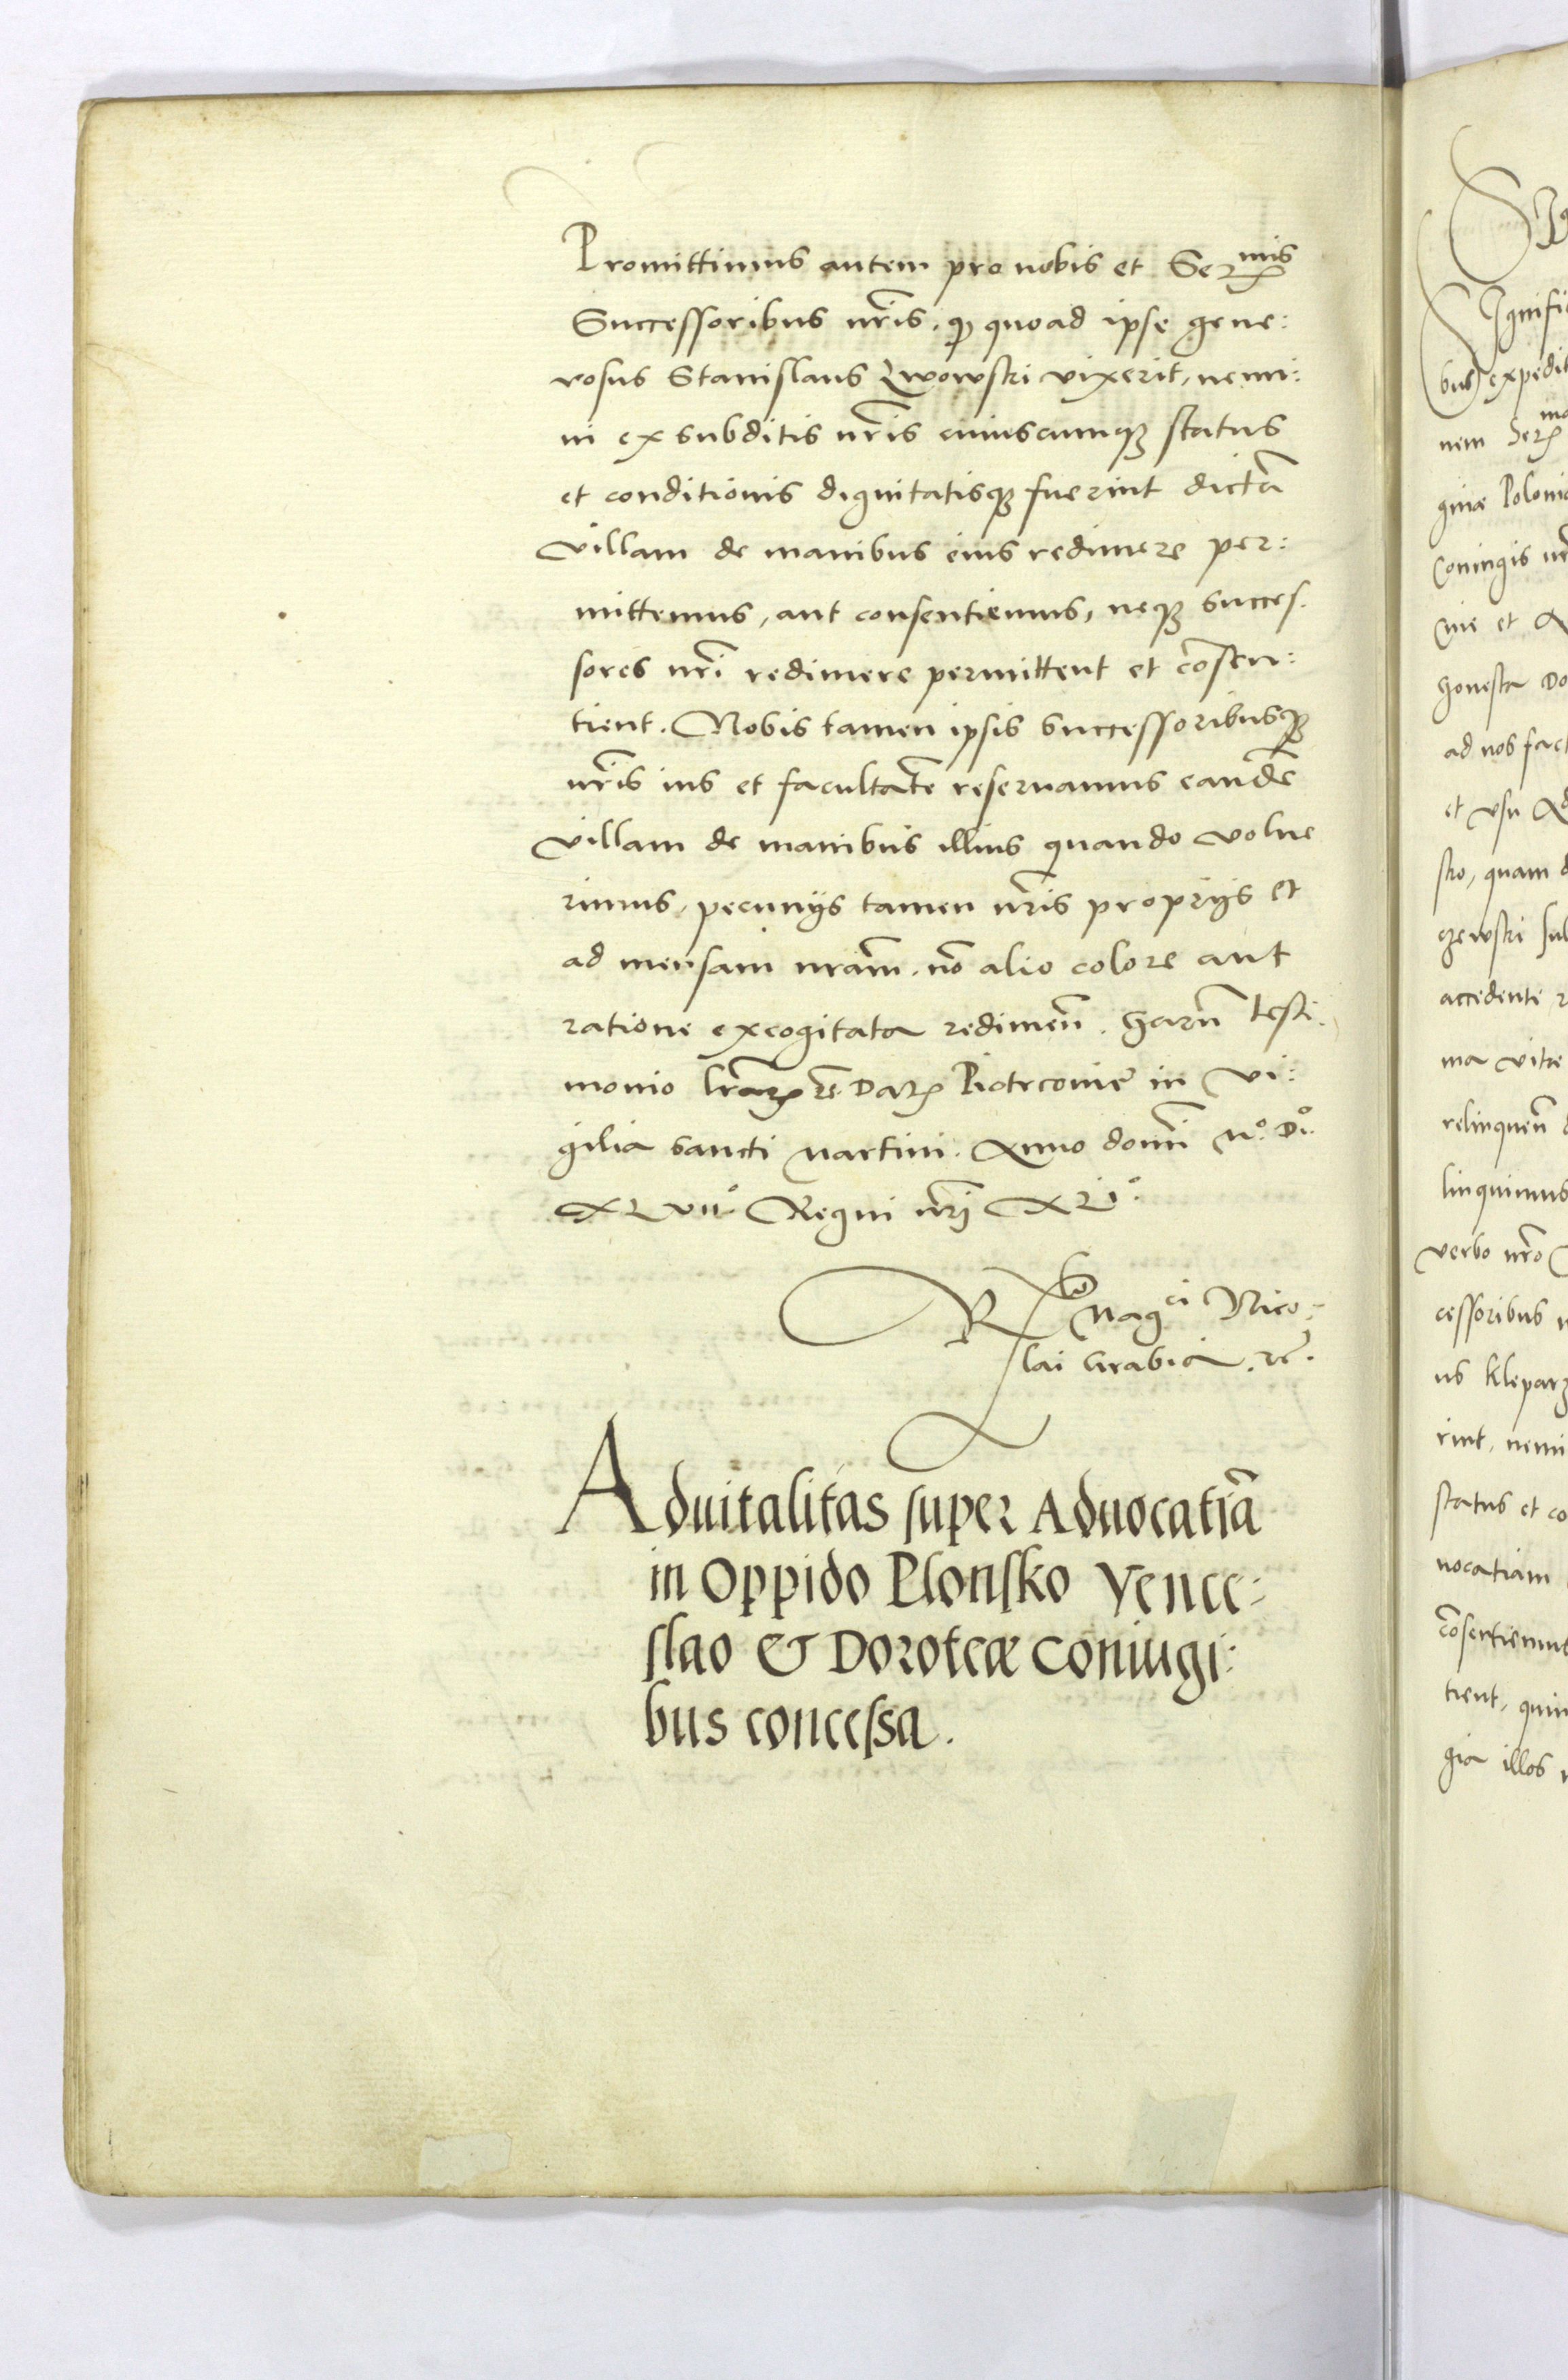 Promittimus autem pro nobis et Ser^mis
Successoribus nr̃is, qꝫ quoad ipse gene:
rosus Stanislaus Lwowski vixerit, nemi:
ni ex subditis nr̃is cuiuscumqꝫ status
et conditionis dignitatisqꝫ fuerint dictã
villam de manibus eius redimere per:
mittemus, aut consentiemus, neqꝫ succes.
sores nr̃i redimere permittent et cõsen:
tient. Nobis tamen ipsis successoribusqꝫ
nr̃is ius et facultatẽ reseruamus eandẽ
villam de manibus illius quando volue
rimus, pecunijs tamen nr̃is proprijs et
ad mensam nrãm, nõ alio colore aut
ratione excogitata redimeñ. Harũ testi.
monio lr̃arꝝ etc̃. Datꝝ Piotrconiẽ in vi:
gilia sancti Martini. Anno domĩ Mº. Dº.
XLviiº Regni nr̃i XLiº.
R^lo Mag^ci Nico:
lai Grabia. etc̃.
Aduitalitas super Aduocatiã
in Oppido Plonsko Vence:
slao & Doroteæ Coniugi:
bus concessa.
bus expedit
nem Serꝫ
ginæ Polonia
Coniugis
honesta Do
ad nos fact
et vsu
sto, quam d
accedente
ma vitæ
relinqueñ
linquimus
verbo nr̃o
cessoribus
us Klepar
rint, nemi
status et co
uocatiam
cõsentiemus
tient, quin
gia illos